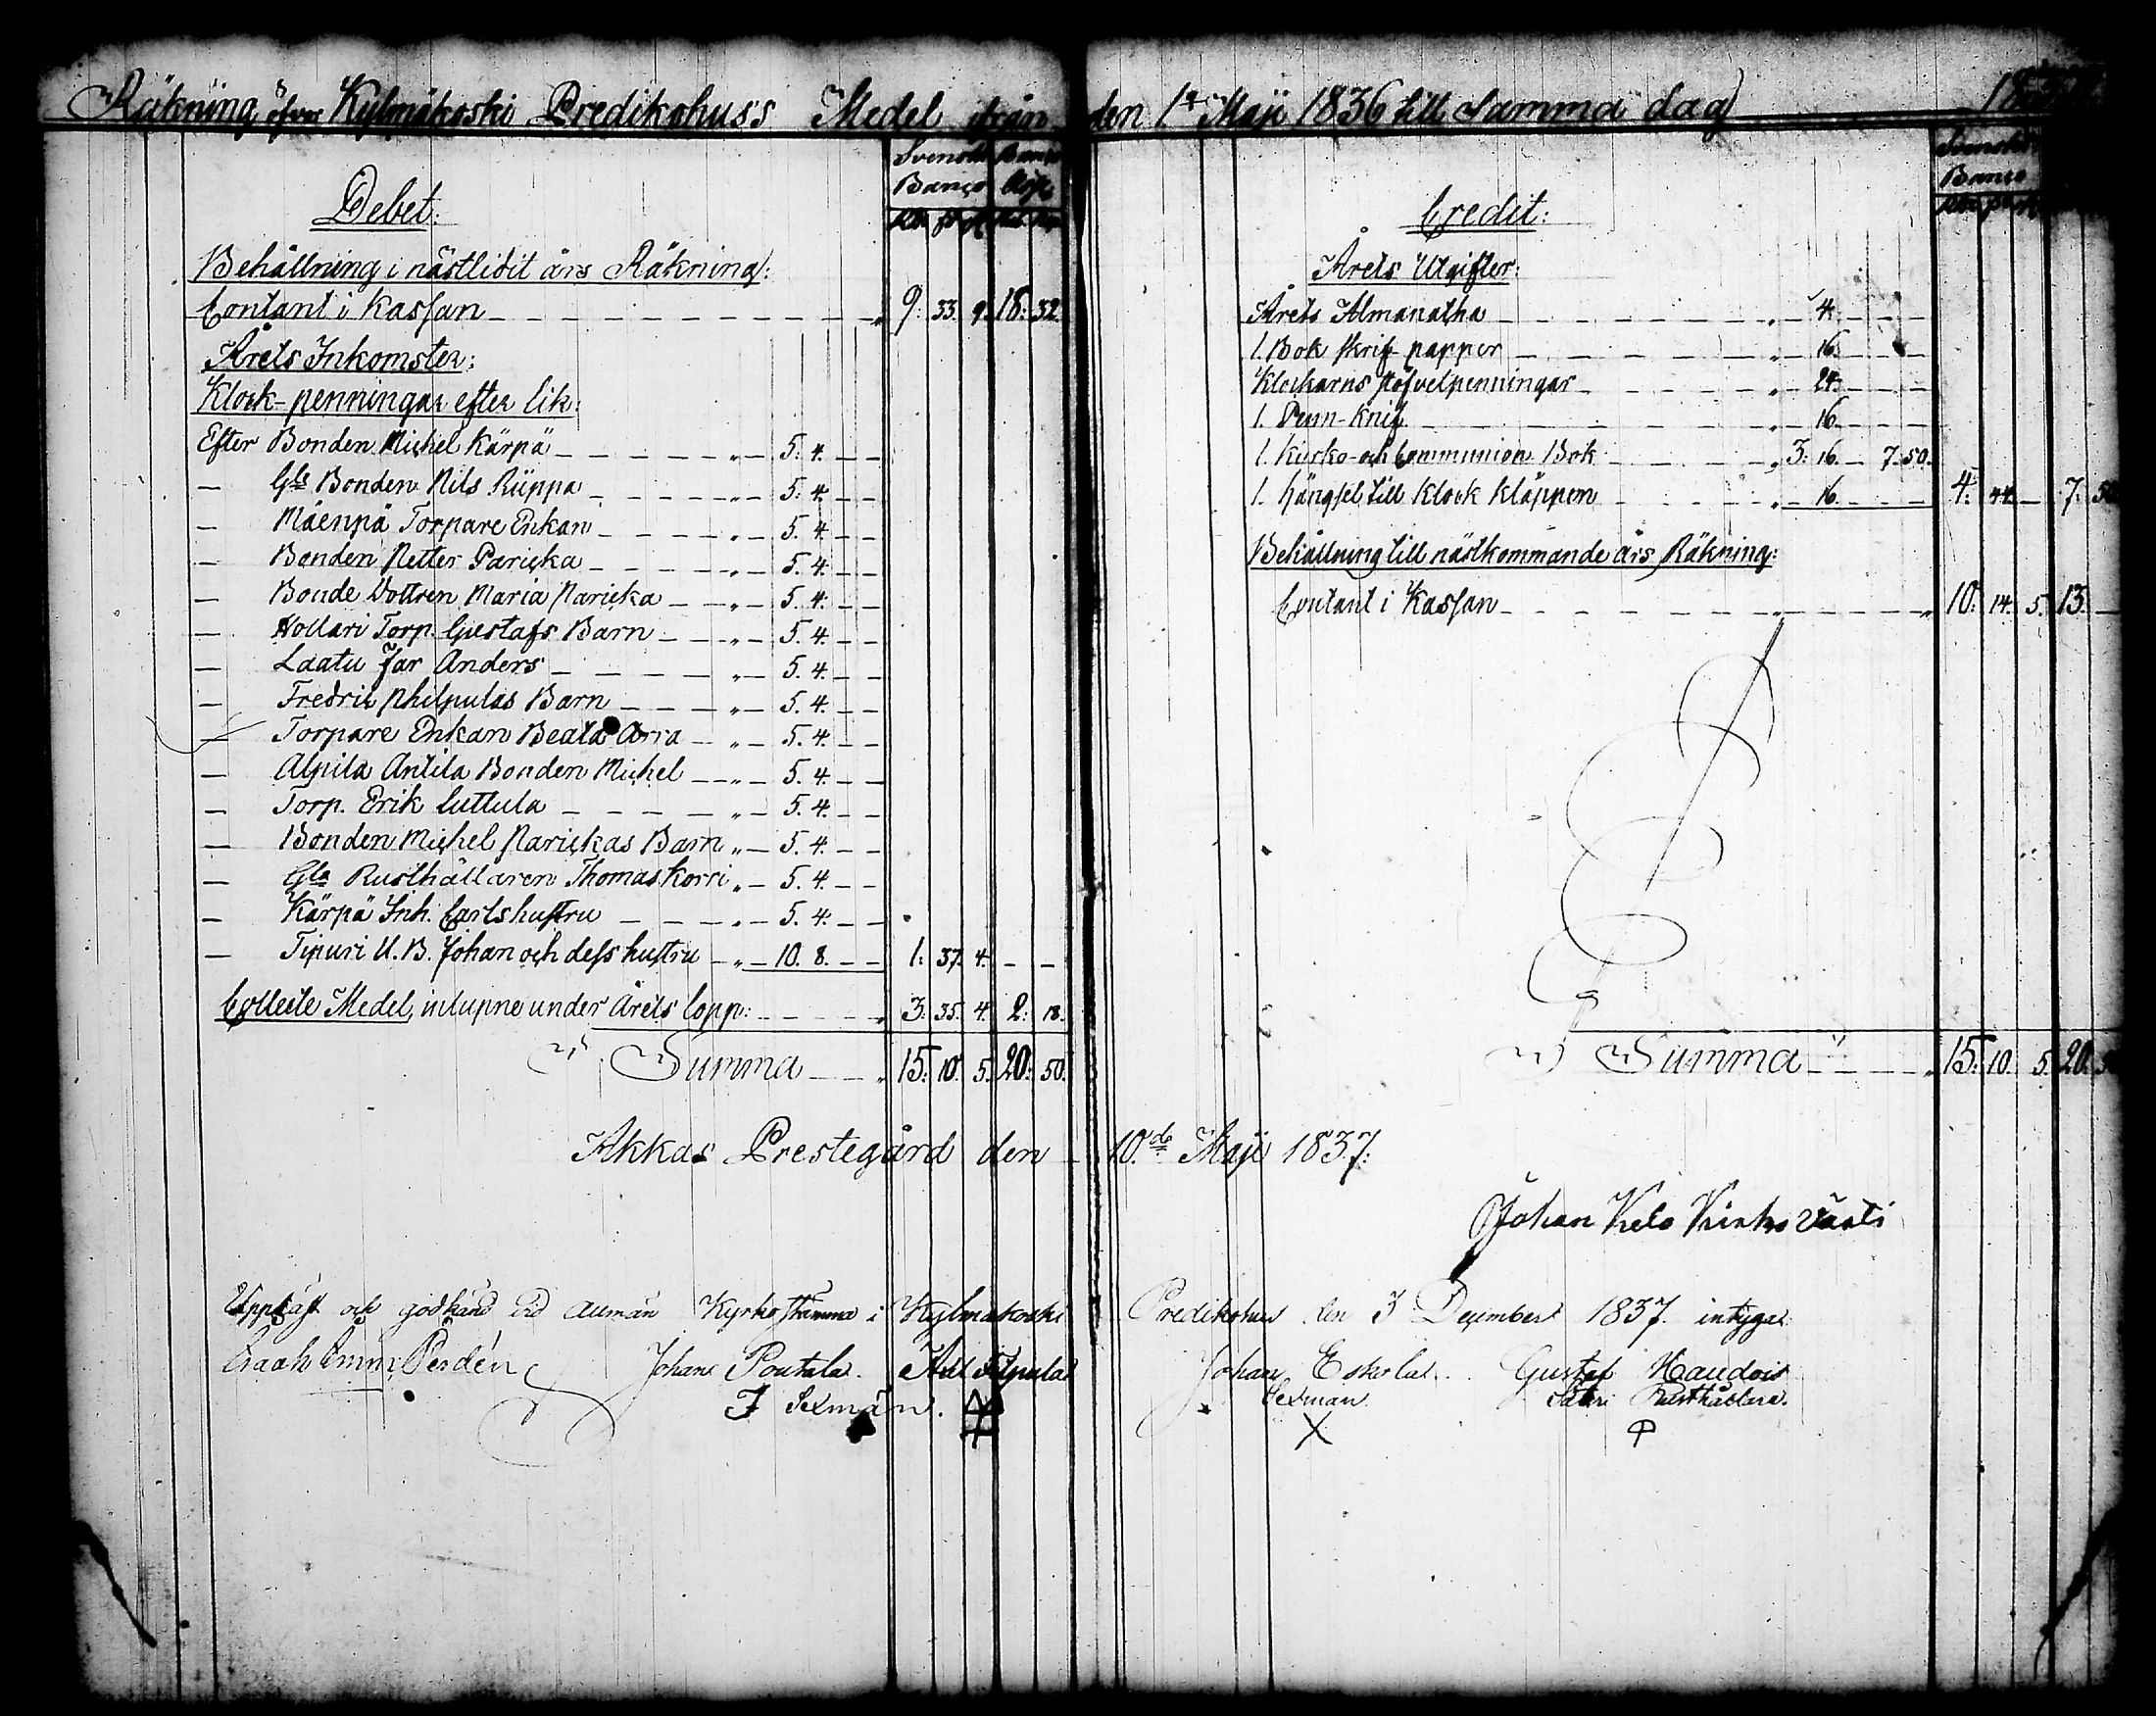 Räkning öfver Kylmäkoski Predikohus's Medel ifrån den 1st Maji 1836 till Samma dag
Svensk Banco
Debet:
Behållning i nästlidit års Räkning:
Contant i Kassan 9: 33. 9. 18: 32.
Årets Inkomster:
Klock-penningar efter lik:
Efter Bonden Michel Kärpä 5. 4.
— Gle Bonden Nils Rüppa 5. 4.
— Mäenpä Torpare Enkan 5. 4.
— Bonden Petter Paricka 5. 4.
— Bonde Dottren Maria Paricka 5. 4.
— Hollari Torp. Gustafs Barn 5. 4.
— Laatu Far Anders 5. 4.
— Fredric Philpulas Barn 5. 4.
— Torpare Enkan Beata Arra 5. 4.
— Alpila Antila Bonden Michel 5. 4.
— Torp. Erik Luttula 5. 4.
— Bonden Michel Parickas Barn 5. 4.
— Gla Rusthållaren Thomas Korri 5. 4.
— Kärpä Inh. Carls hustru 5. 4.
— Tipuri U. B. Johan och dess hustru 10. 8. 1: 37. 4. — —
Collecte Medel, inlupne under Årets lopp: 3: 35. 4. 2: 18.
Summa 15: 10. 5. 20: 50.
Svensk Banco
Credit:
Årets Utgifter:
Årets Almanatha 4.
1. Bok skrif papper 16.
Klockarns stöfvelpenningar 24.
1. Penn-knif 16.
1. Kyrko- och Communion Bok 3: 16. — 7. 50.
1. hängsel till Klock kläppen 16. 4: 44. — 7: 50
Behållning till nästkommande års Räkning:
Contant i Kassan 10: 14. 5. 13. —
Summa 15: 10. 5. 20:
Akkas Prestegård den 10de Maji 1837.
Johan Kelo Kirko Värti
Uppläst och godkänd vid allmän Kyrkostämma i Kylmäkoski Predikohus den 3 December 1837. intygar
Isaah Perdén Johan Poutala. Filpula Johan Eskola. Gustaf Haudois
Sexmän. Sexman. Säteri Rusthållare.
X